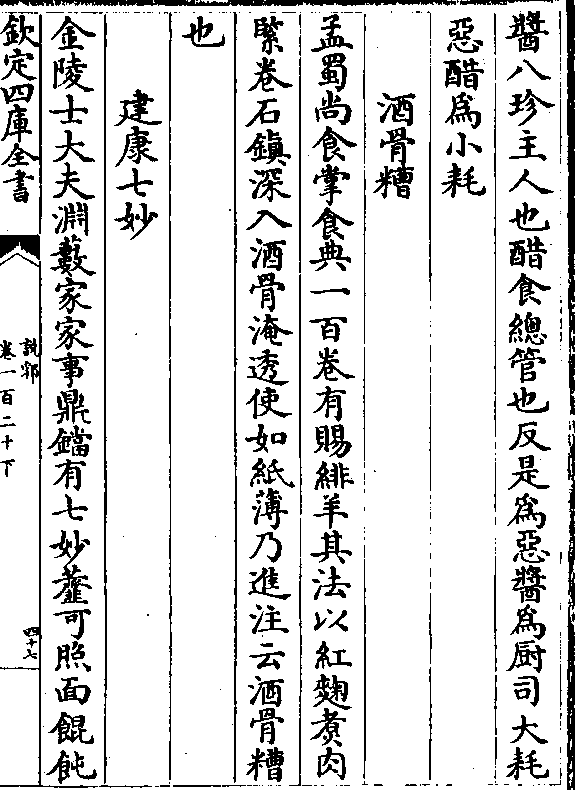 醬八珍主人也醋食總管也反是爲惡醬爲厨司大耗
惡醋爲小耗
酒骨糟
孟蜀尚食掌食典一百卷有賜緋羊其法以紅麴煑肉
緊卷石鎮深入酒骨淹透使如紙薄乃進注云酒骨糟
也
建康七妙
金陵士大夫淵藪家家事鼎鐺有七妙虀可照面餛飩
欽定四庫全書
說郛
卷一百二十下
四十七